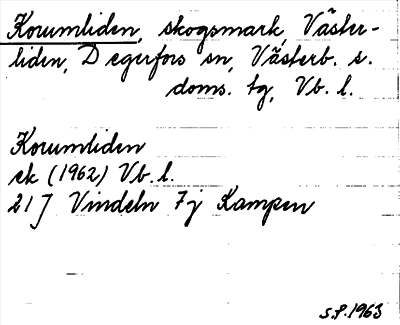 Korumliden, skogsmark, Väster-
liden, Degerfors sn, Västerb. s.
doms. tg, Vb. l.
Korumliden
ek (1962) Vb. l.
21 J Vindeln 7 j Kampen
S.P. 1963